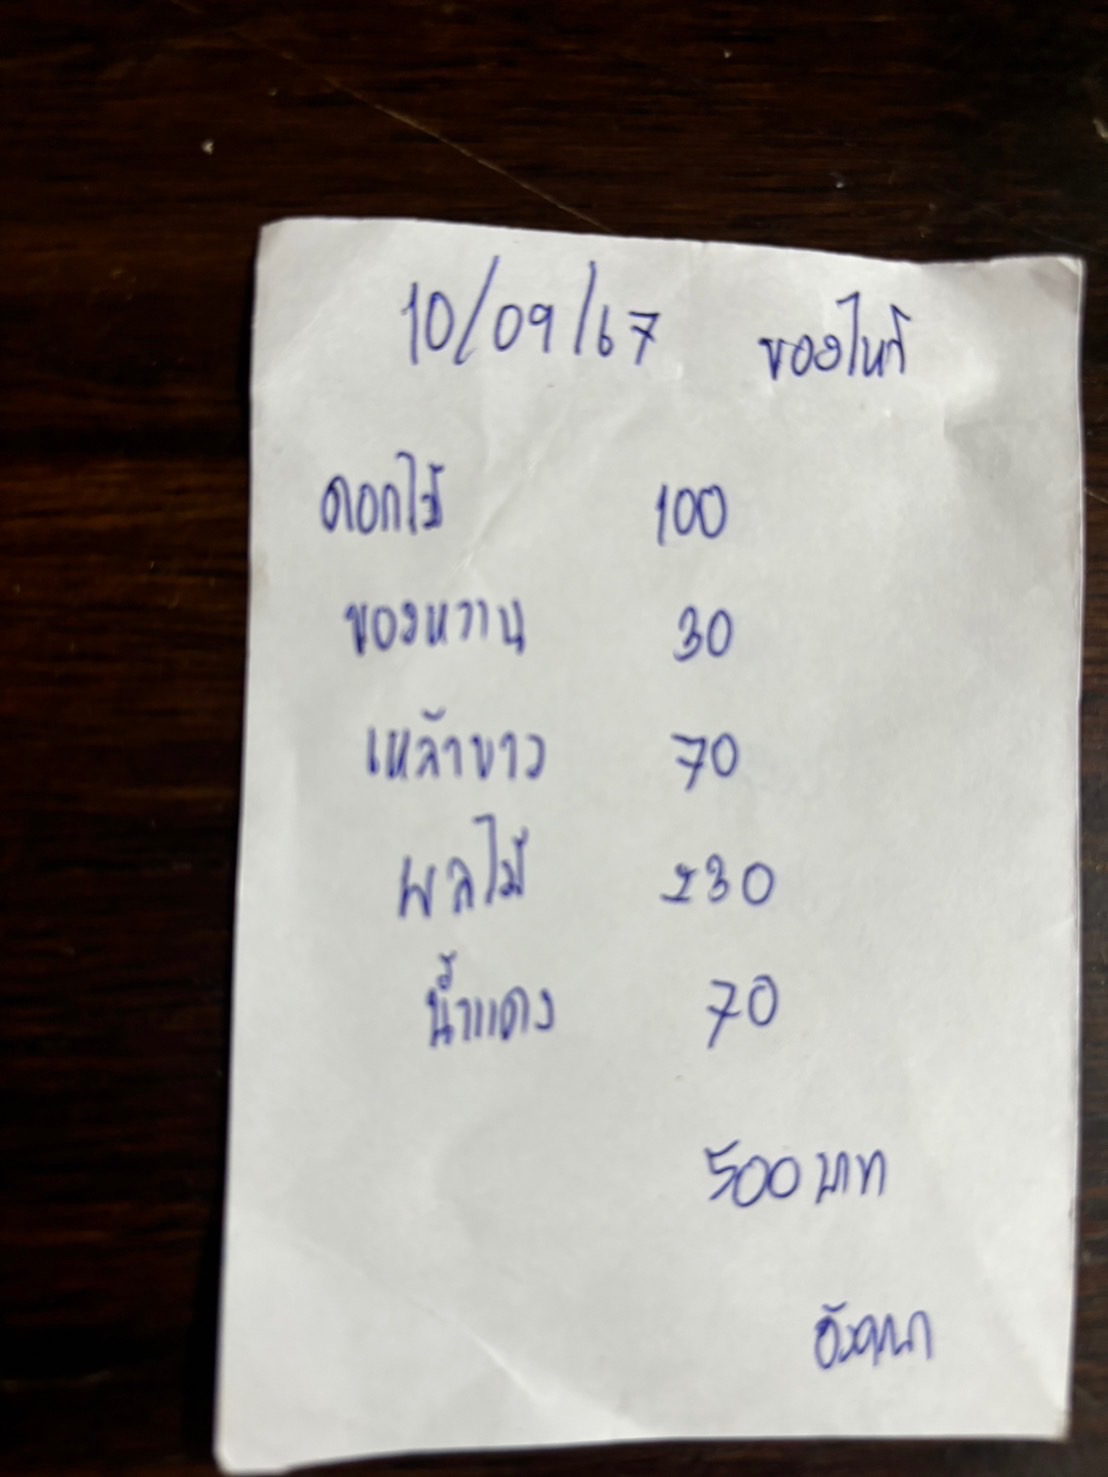 10/09/67 ของไหว้
ดอกไม้ 100
ของหวาน 30
เหล้าขาว 70
ผลไม้ 230
น้ำแดง 70
500 บาท
อังคณา